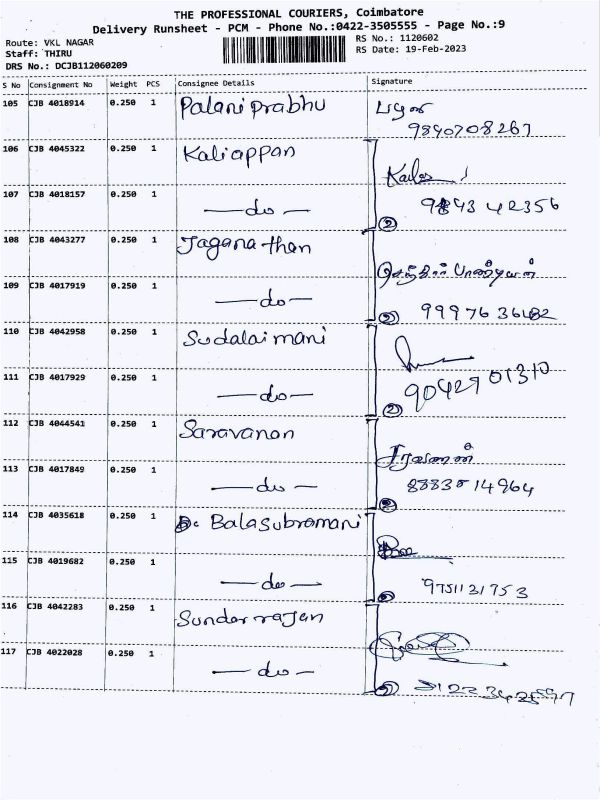 THE PROFESSIONAL COURIERS, Coimbatore
Delivery Runsheet - PCM - Phone No.:0422-3505555 - Page No.:9
Route: VKL NAGAR
Staff: THIRU
DRS No.: DCJB112060209
RS No.: 1120602
RS Date: 19-Feb-2023
S No Consignment No Weight PCS Consignee Details Signature
105 CJB 4018914 0.250 1 Palaniprabhu பழனி
9840708267
106 CJB 4045322 0.250 1 Kaliappan
107 CJB 4018157 0.250 1 —do— 9843 42356
②
108 CJB 4043277 0.250 1 Jaganathan செந்தில் பாண்டியன்
109 CJB 4017919 0.250 1 —do— 9997636482
②
110 CJB 4042958 0.250 1 Sudalaimani
111 CJB 4017929 0.250 1 —do— 9042701310
②
112 CJB 4044541 0.250 1 Saravanan சரவணன்
113 CJB 4017849 0.250 1 —do— 8883814964
②
114 CJB 4035618 0.250 1 Balasubramani
115 CJB 4019682 0.250 1 —do— 9751131753
②
116 CJB 4042283 0.250 1 Sundarrajan
117 CJB 4022028 0.250 1 —do—
②